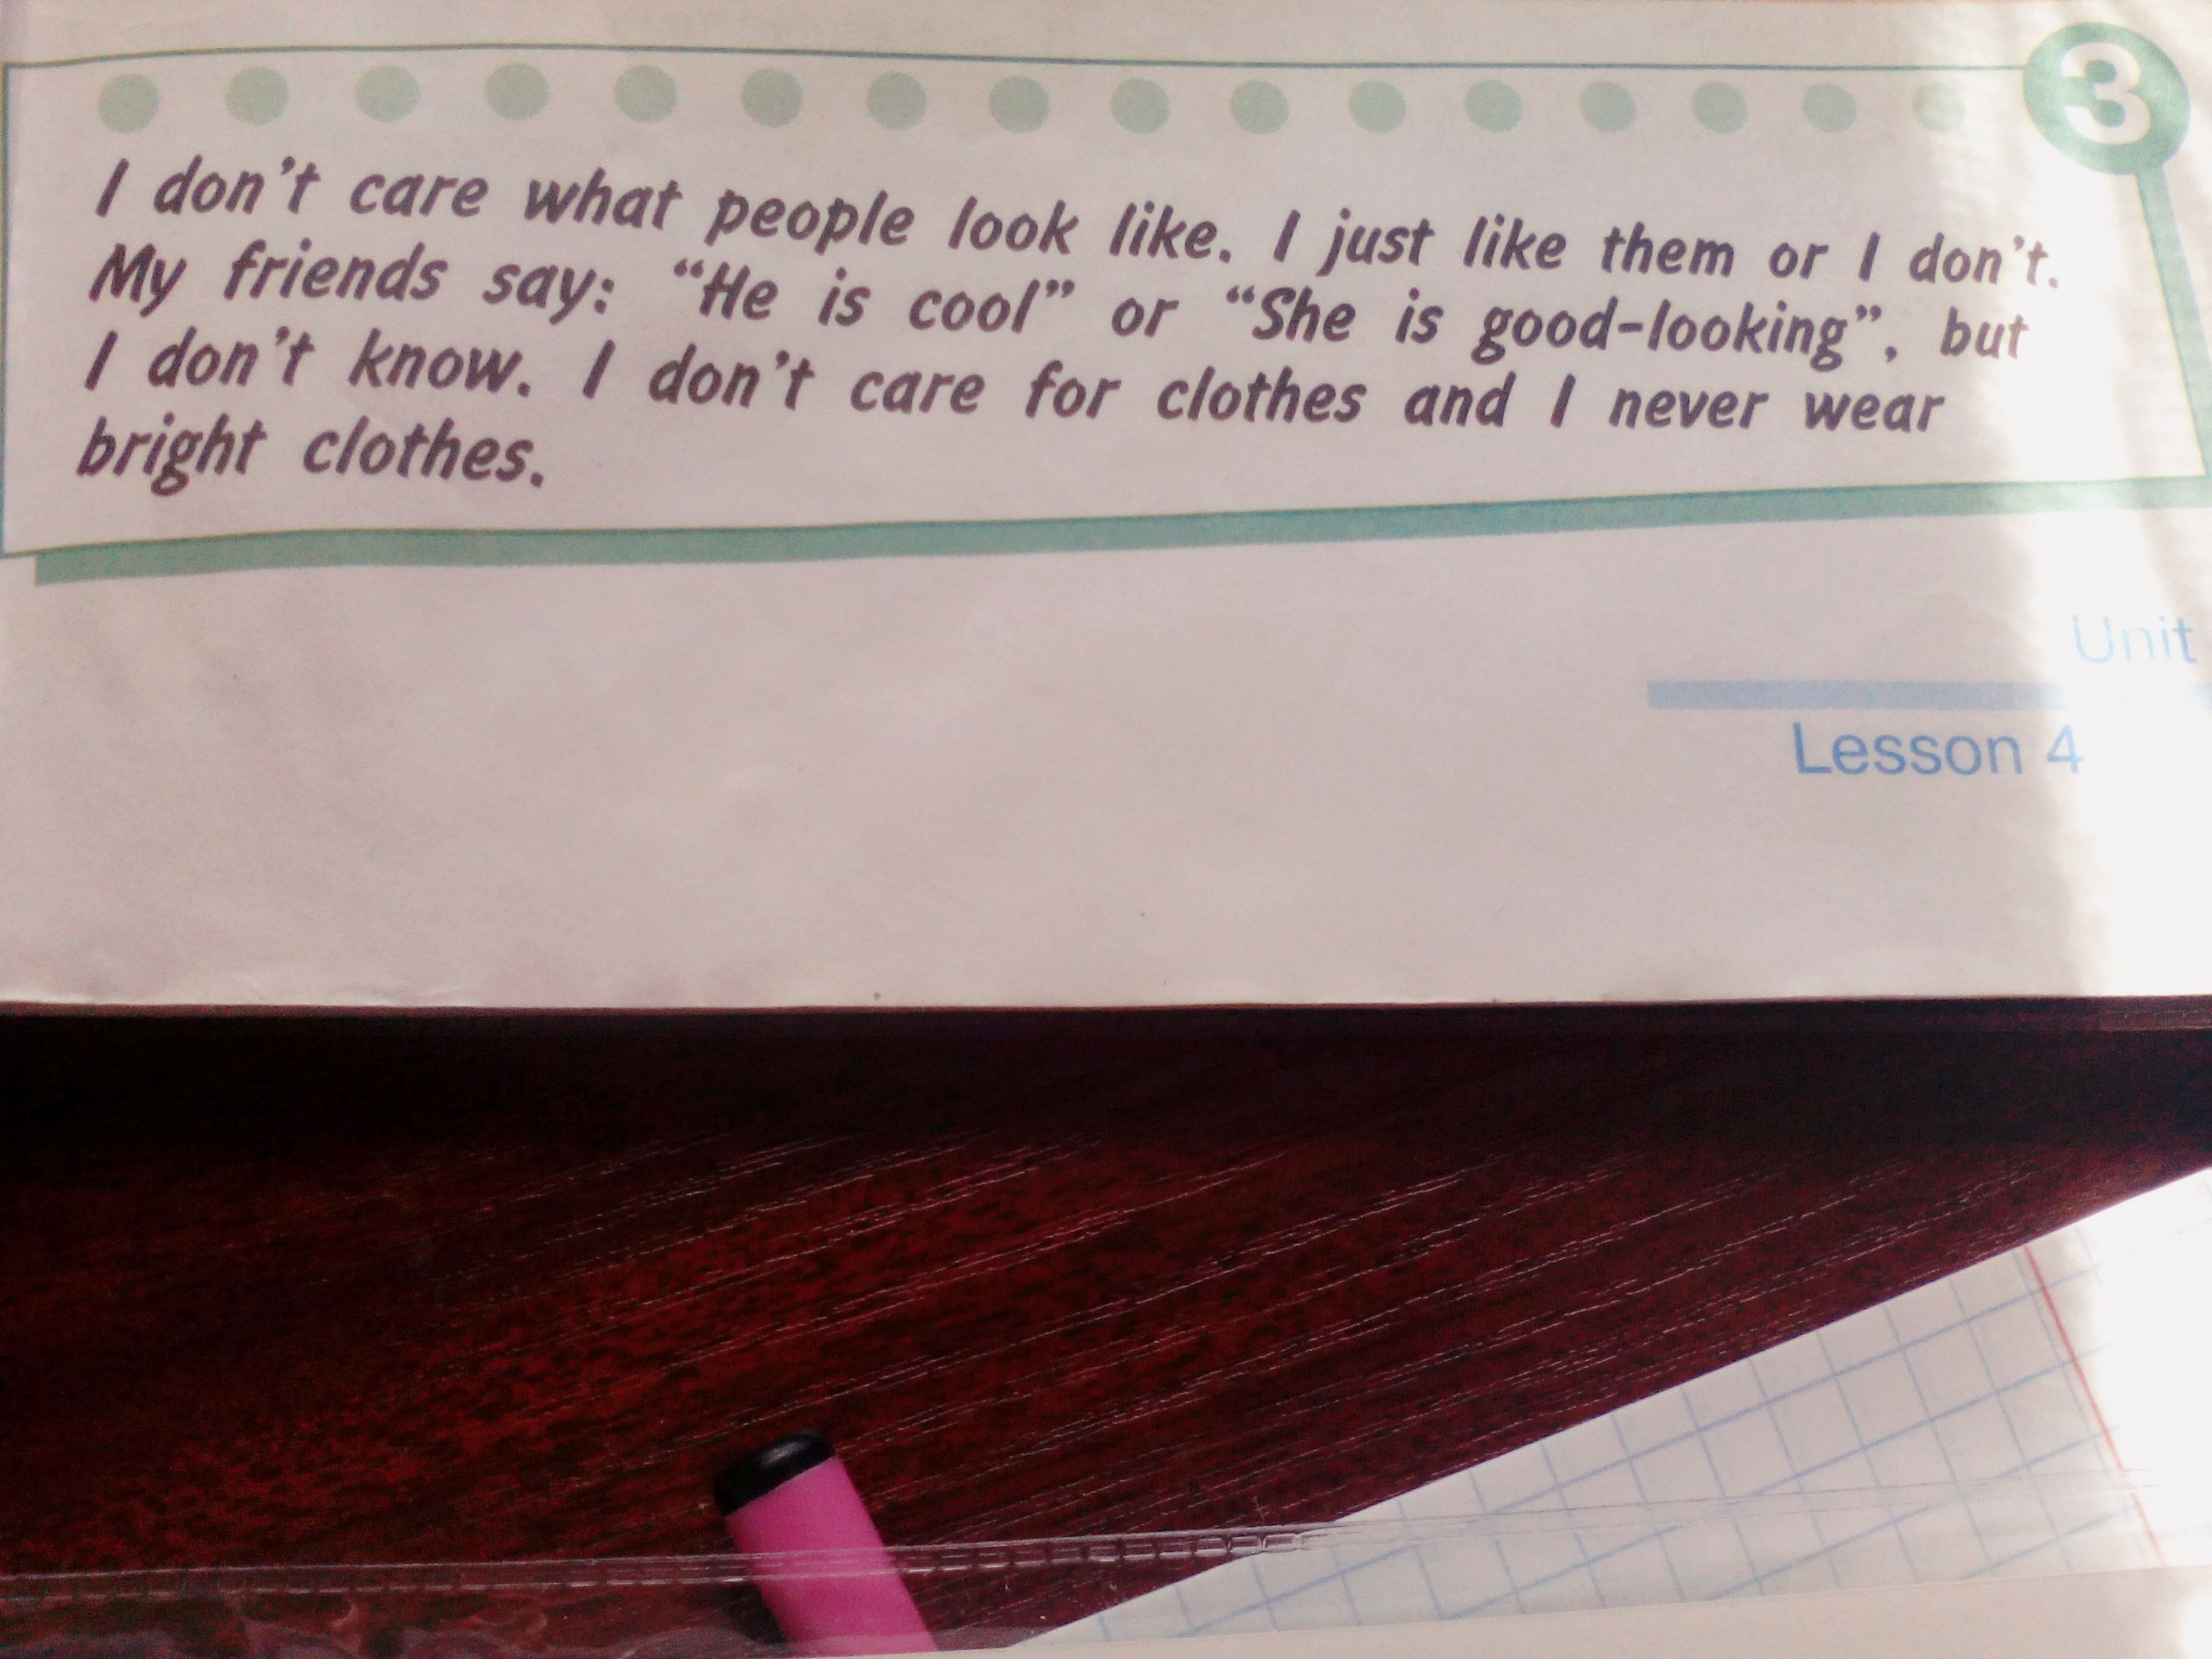 3
I don't care what people look like. I just like them or I don't.
My friends say: “He is cool” or “She is good-looking”, but
I don't know. I don't care for clothes and I never wear
bright clothes.
Unit
Lesson 4